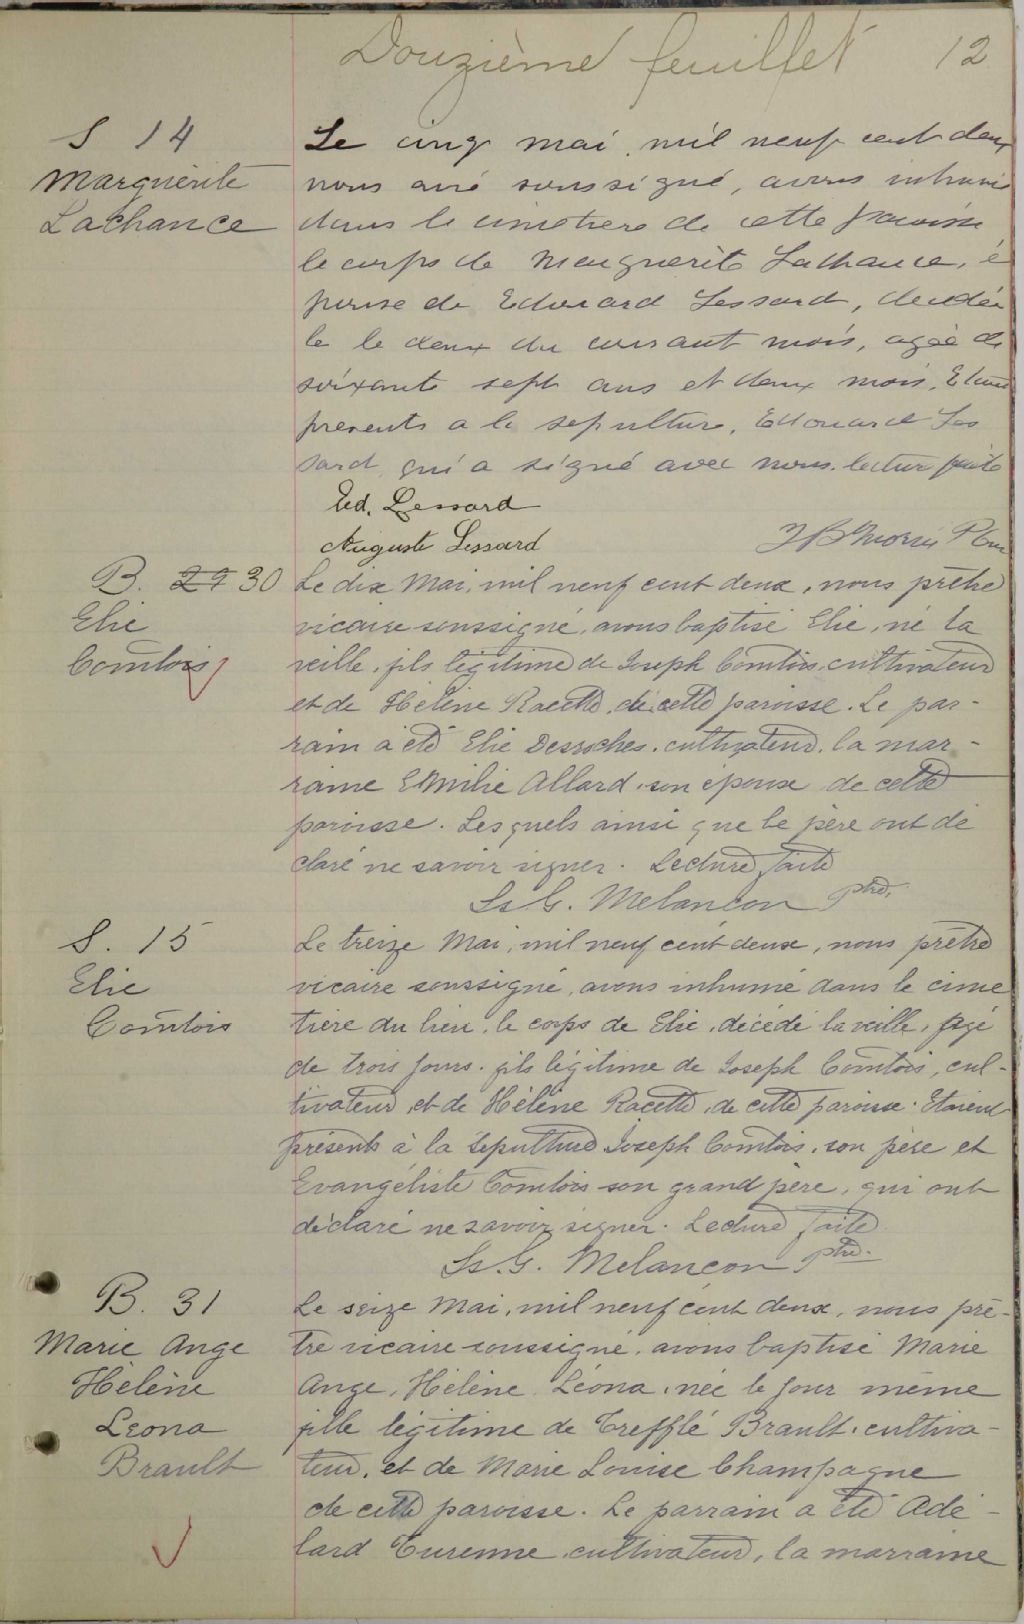 Douzième feuillet 12
S 14
Marguerite
Lachance
Le cinq mai, mil neuf cent deux
nous curé soussigné, avons inhumé
dans le cimetiere de cette paroisse
le corps de Marguerite Lachance, é
pouse de Edouard Lessard, décédée
le le deux du courant mois, agée de
soixante sept ans et deux mois. Etaient
presents a la sepulture, Edouard Les
sard qui a signé avec nous. lecture faite
Ed. Lessard
Auguste Lessard
B. 29 30
Elie
Comtois
Le dix Mai, mil neuf cent deux, nous prêtre
vicaire soussigné, avons baptisé Elie, né la
veille, fils légitime de Joseph Comtois, cultivateur
et de Hélène Racette, de cette paroisse. Le par-
rain a été Elie Desroches, cultivateur, la mar-
raine Emilie Allard, son épouse de cette
paroisse. Lesquels ainsi que le père ont dé
claré ne savoir signer. Lecture faite
Ls G. Melançon ptre.
S. 15
Elie
Comtois
Le treize Mai, mil neuf cent deux, nous prêtre
vicaire soussigné, avons inhumé dans le cime
tière du lieu, le corps de Elie, décédé la veille, agé
de trois jours, fils légitime de Joseph Comtois, cul-
tivateur, et de Hélène Racette, de cette paroisse. Etaient
présents à la sépulture Joseph Comtois, son père et
Evangéliste Comtois son grand père, qui ont
déclaré ne savoir signer. Lecture faite.
Ls. G. Melançon ptre.
B. 31
Marie Ange
Hélène
Leona
Brault
Le seize Mai, mil neuf cent deux, nous prê-
tre vicaire soussigné, avons baptisé Marie
Ange, Hélène, Léona, née le jour même
fille légitime de Trefflé Brault, cultiva-
teur, et de Marie Louise Champagne
de cette paroisse. Le parrain a été Adé-
lard Turenne, cultivateur, la marraine